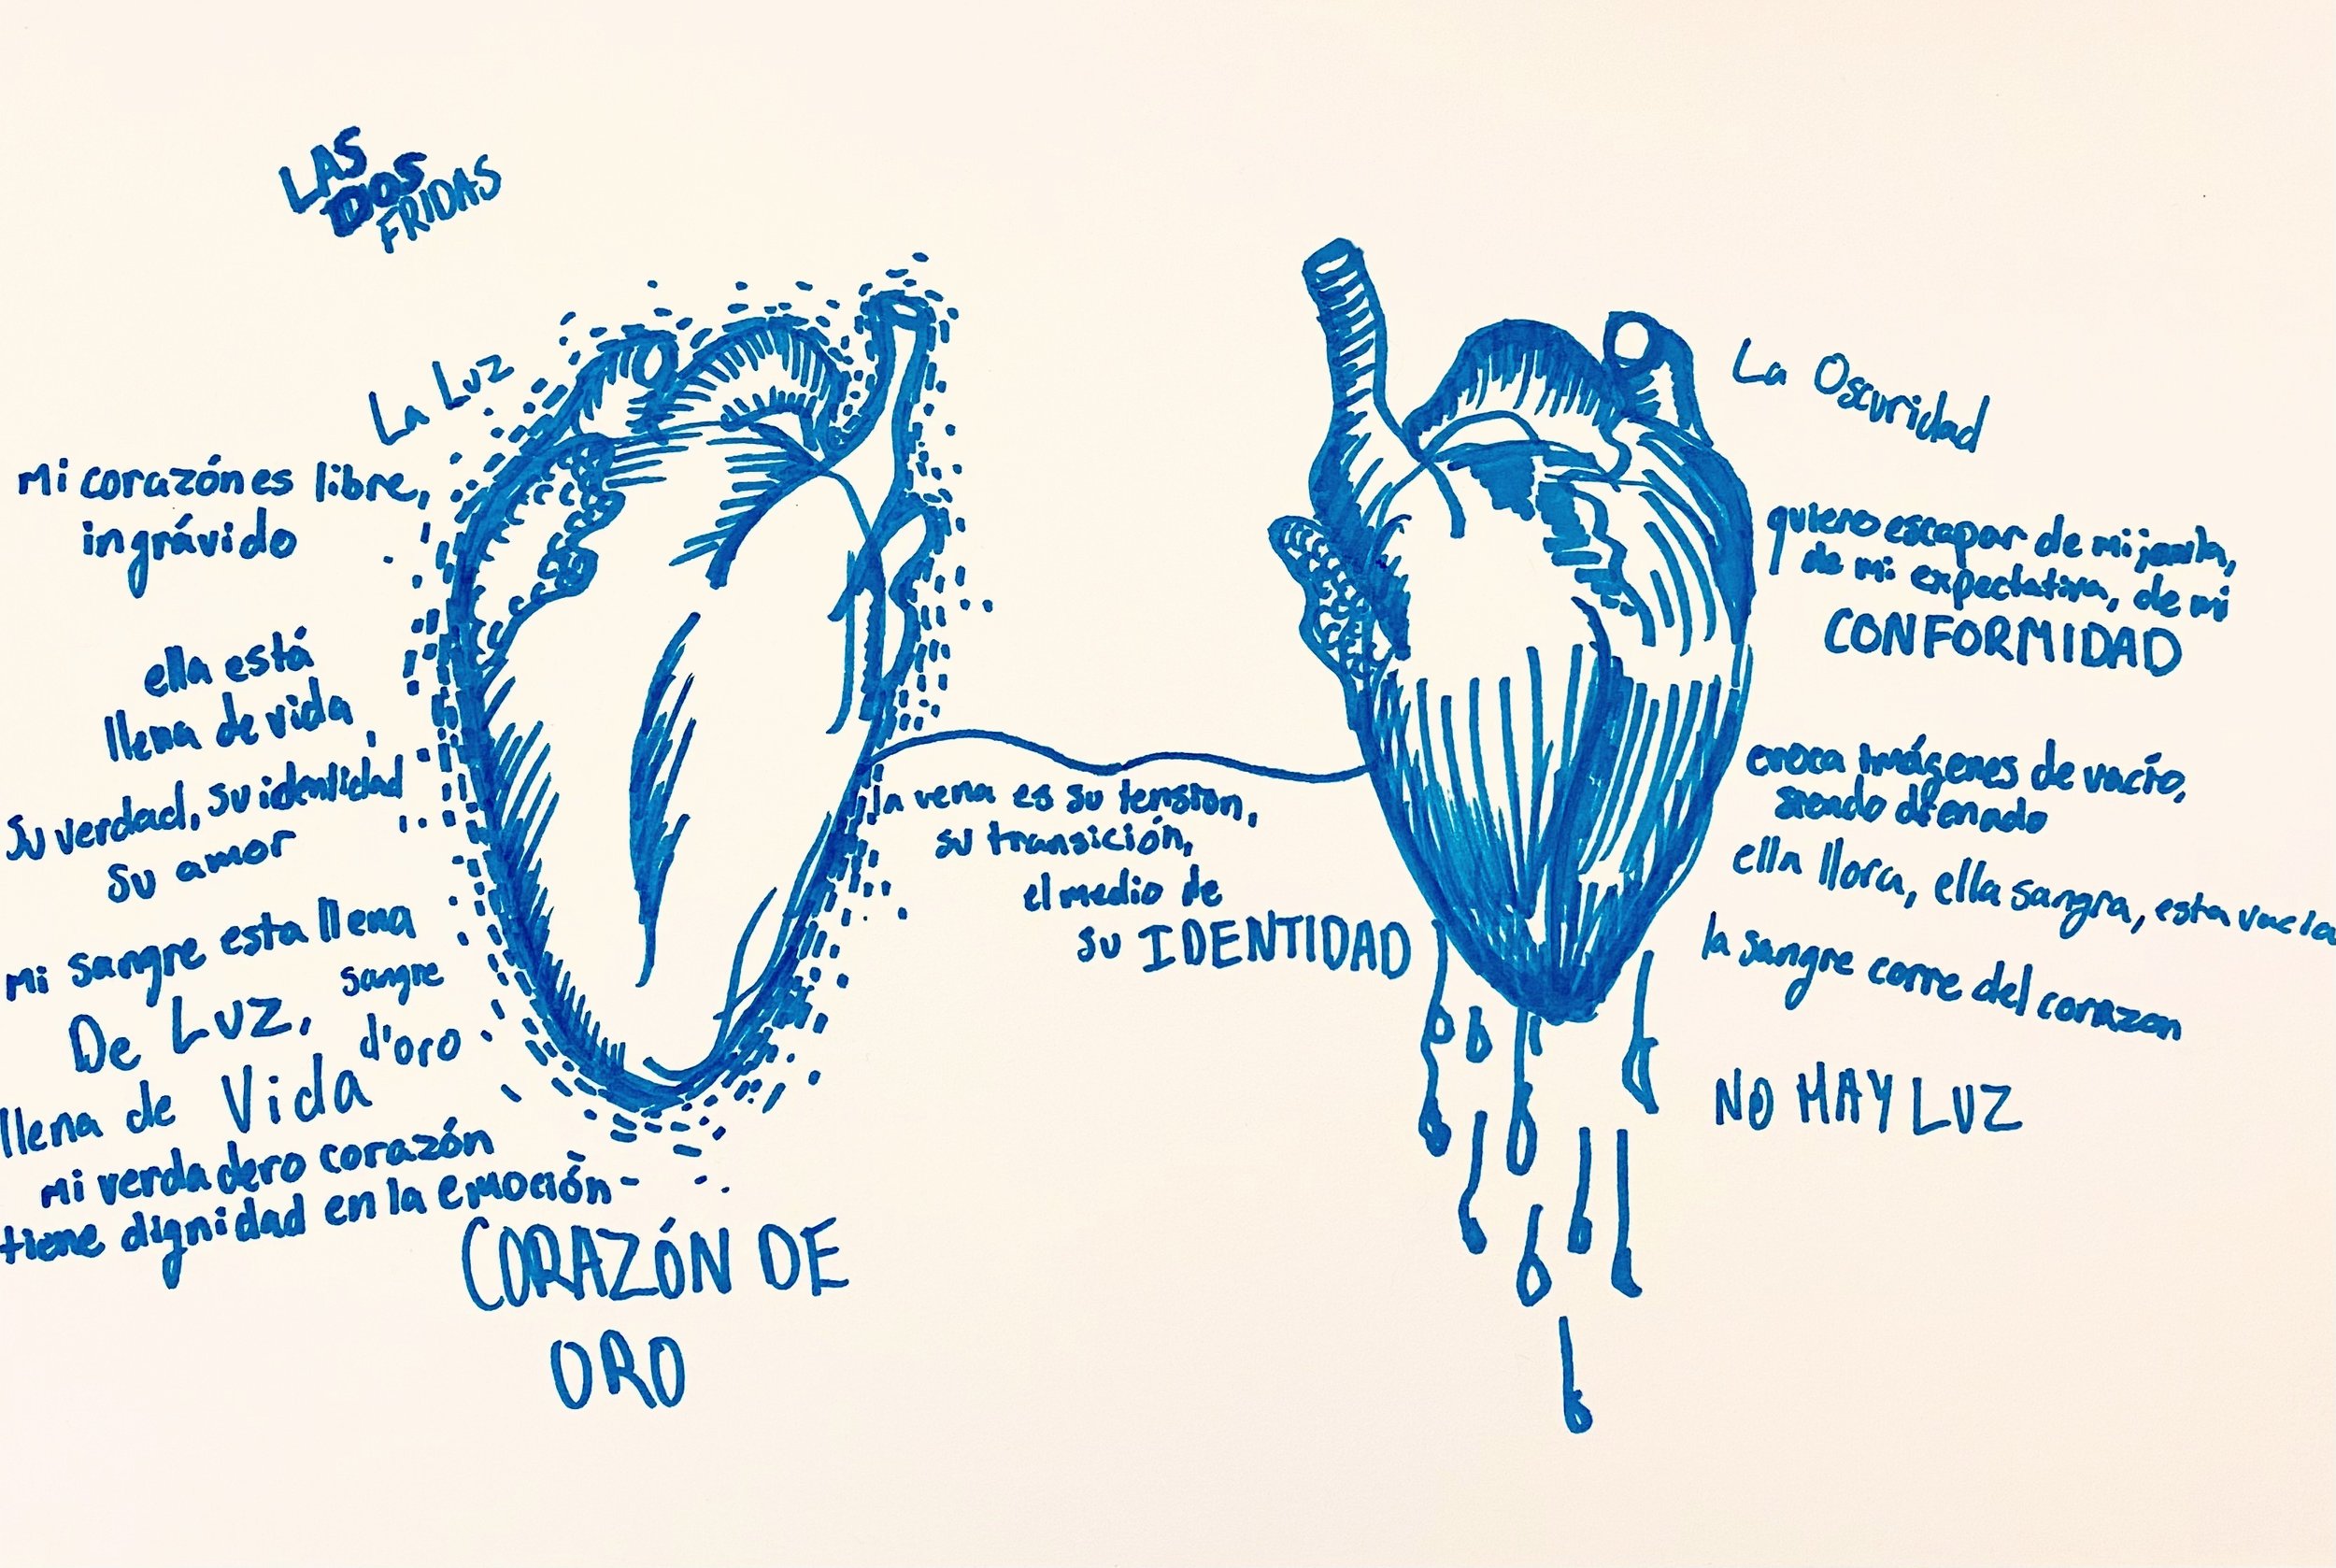 LAS
DOS
FRIDAS
La Luz
mi corazón es libre,
ingrávido
ella está
llena de vida
su verdad, su identidad
su amor
mi sangre esta llena
De Luz, sangre
d'oro
llena de Vida
mi verdadero corazón
tiene dignidad en la emoción-
CORAZÓN DE
ORO
la vena es su tension,
su transición,
el medio de
su IDENTIDAD
La Oscuridad
quiero escapar de mi jaula,
de mi expectativa, de mi
CONFORMIDAD
evoca imágenes de vacío,
siendo drenado
ella llora, ella sangra, esta vacia
la sangre corre del corazon
NO HAY LUZ